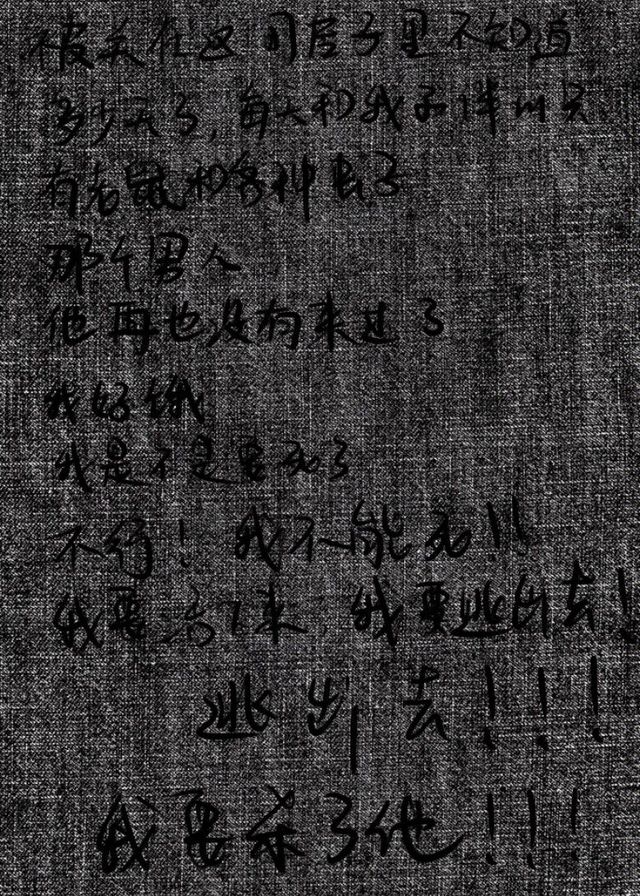 被关在这间房子里不知道
多少天了，每天和我予伴以只
有老鼠和各种虫子
那个男人
他再也没有来过了
我好饿
我是不是要死了
不行！我不能死!!
我要活下来，我要逃出去!
逃出去!!!
我要杀了他!!!